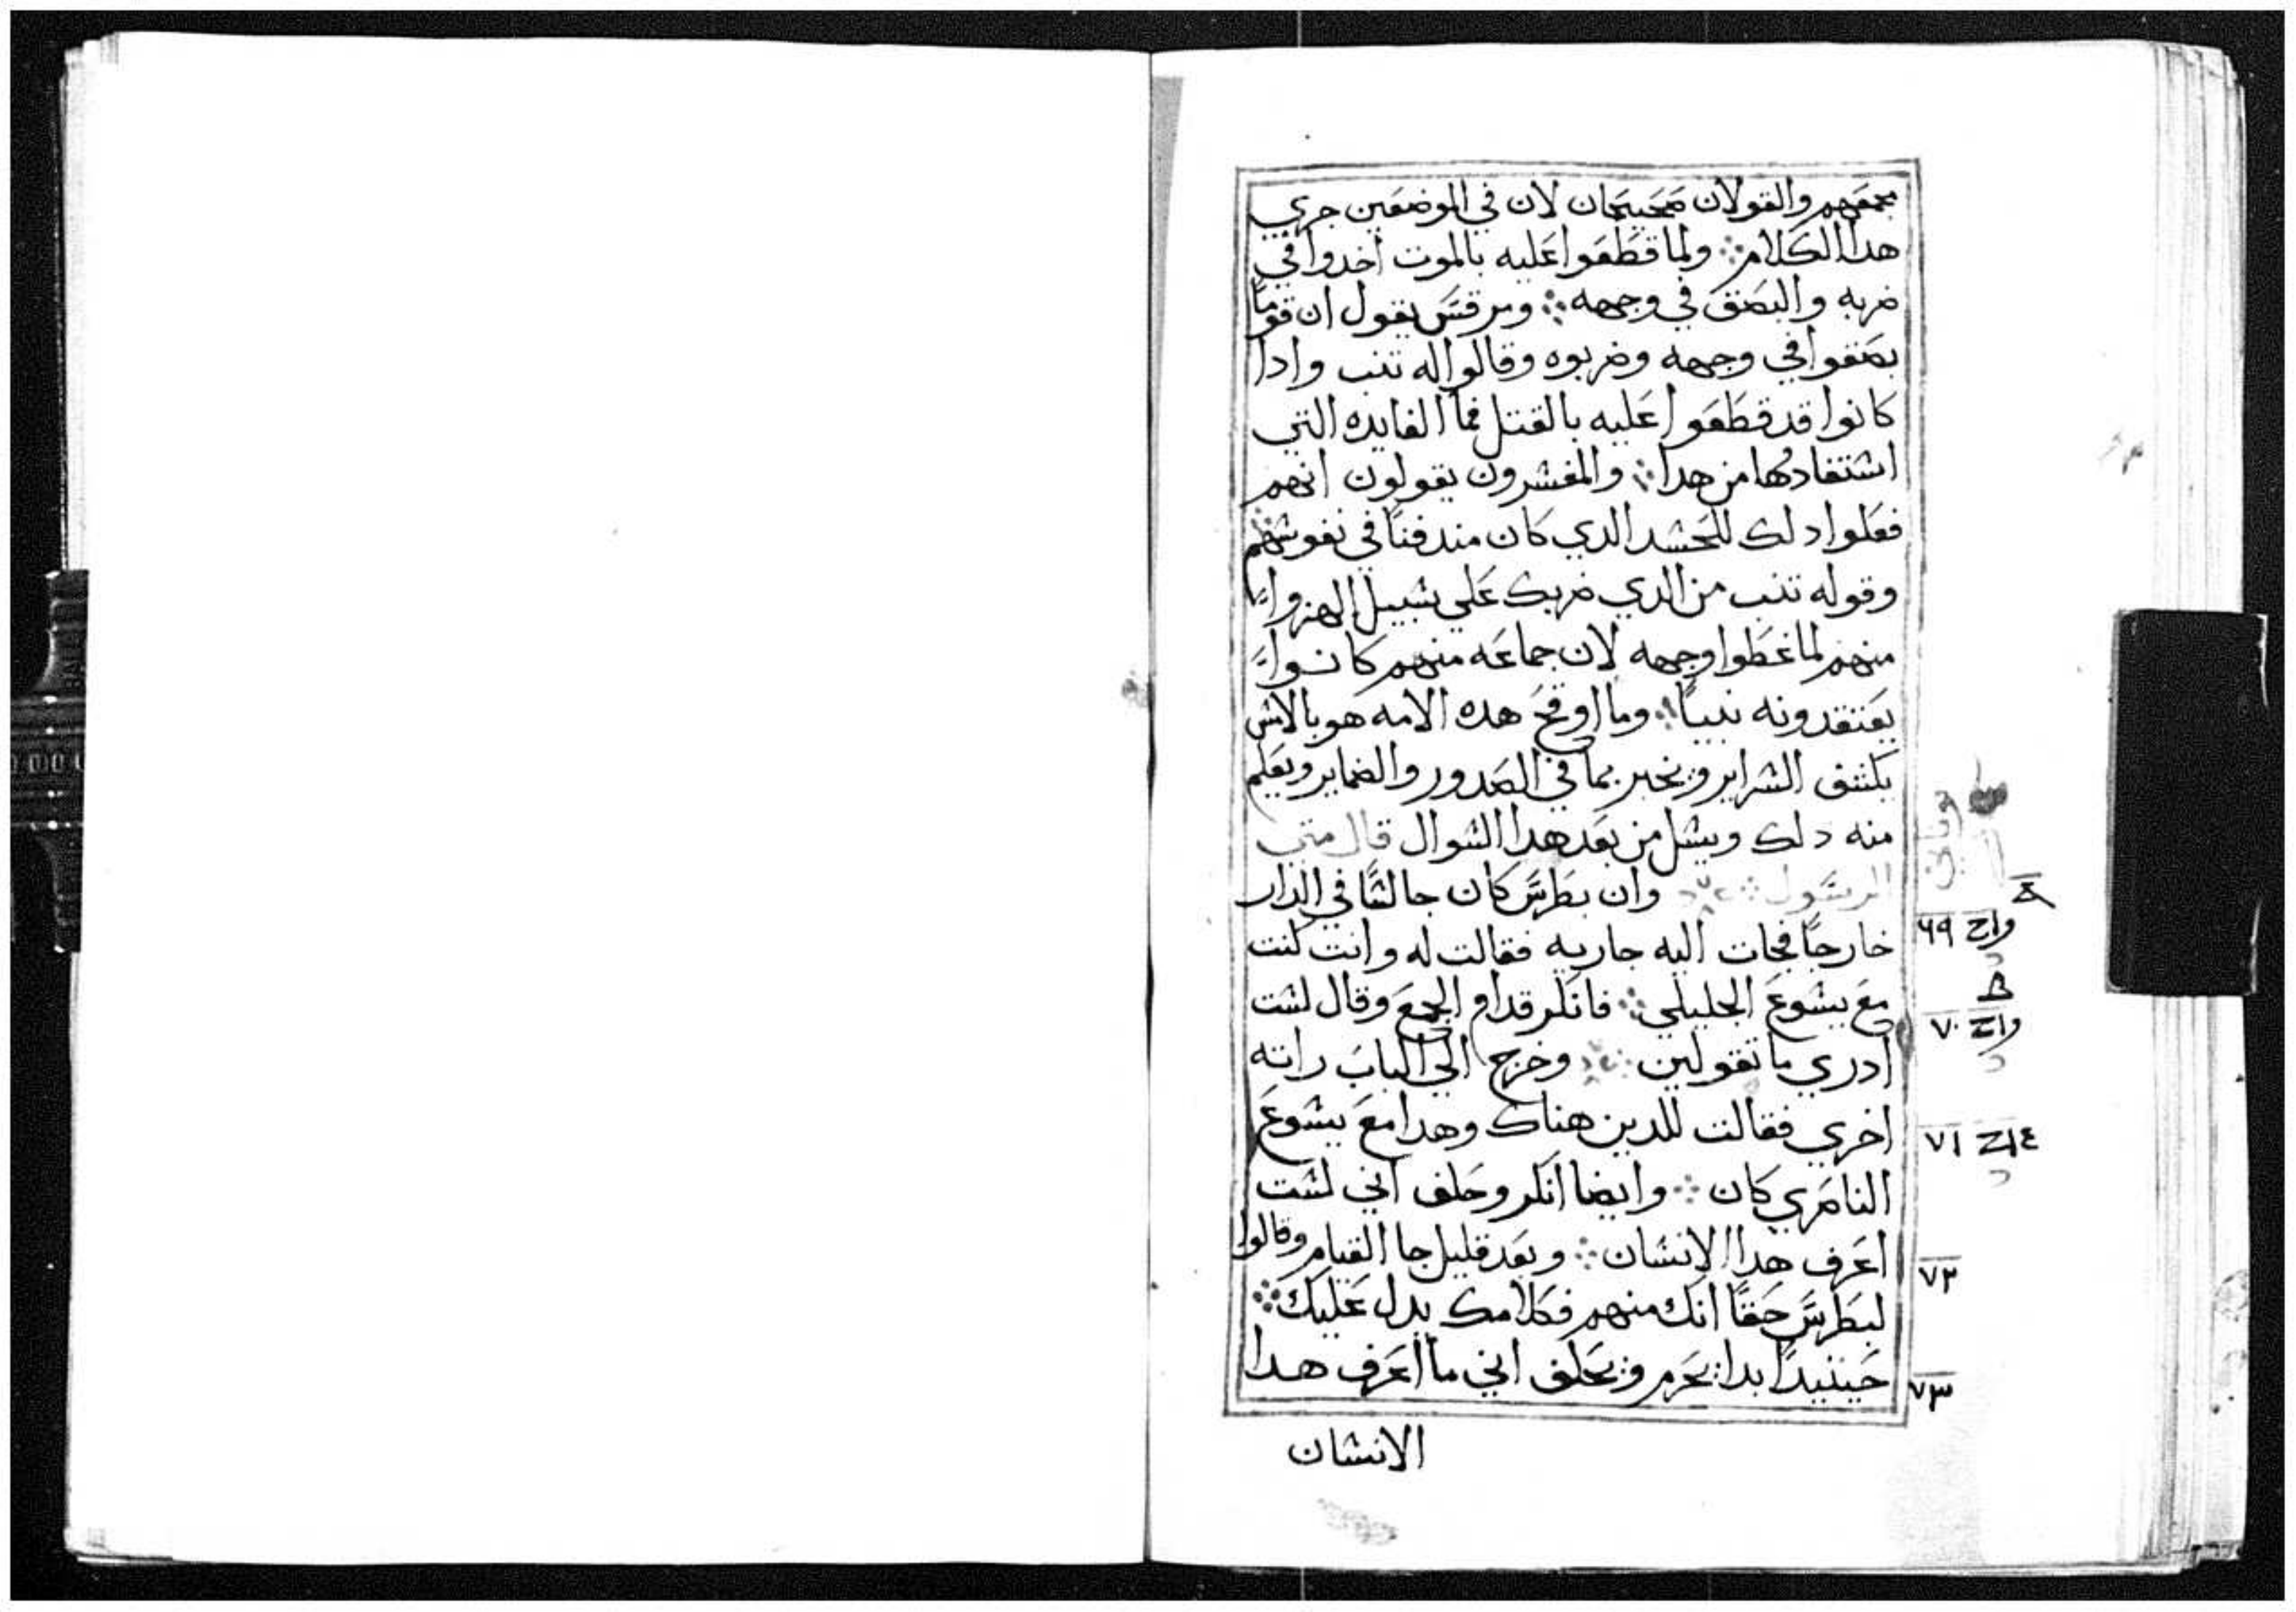 بجمعهم والقولان صحيحان لان في الموضعين جري
هدا الكلام ولما قطعوا عليه بالموت اخدوا في
ضربه والبصق في وجهه ومرقس يقول ان قوما
بصقوا في وجهه وضربوه وقالوا له تنب وادا
كانوا قد قطعوا عليه بالقتل فما الفايده التي
اشتفادوها من هدا والمفشرون يقولون انهم
فعلوا دلك للحشد الدي كان مندفنا في نفوشهم
وقوله تنب من الدي ضربك علي شبيل الهزوا
منهم لما غطوا وجهه لان جماعه منهم كانوا
يعتقدونه نبيا وما اوقح هده الامه هو بالامش
يكشف الشراير ويخبر بما في الصدور والضماير ويعلم
منه دلك ويشل من بعد هدا الشوال قال متي
الرسول وان بطرس كان جالسا في الدار
خارجا فجات اليه جاريه فقالت له وانت كنت
مع يشوع الجليلي فانكر قدام الجمع وقال لشت
ادري ما تقولين وخرج الي الباب راته
اخري فقالت للدين هناك وهدا مع يشوع
الناصري كان وايضا انكر وحلف اني لشت
اعرف هدا الانشان وبعد قليل جا القيام وقالوا
لبطرس حقا انك منهم فكلامك يدل عليك
حينيدا بدا يحرم ويحلف اني ما اعرف هدا
الانشان
٦٩
٧٠
٧١
٧٢
٧٣